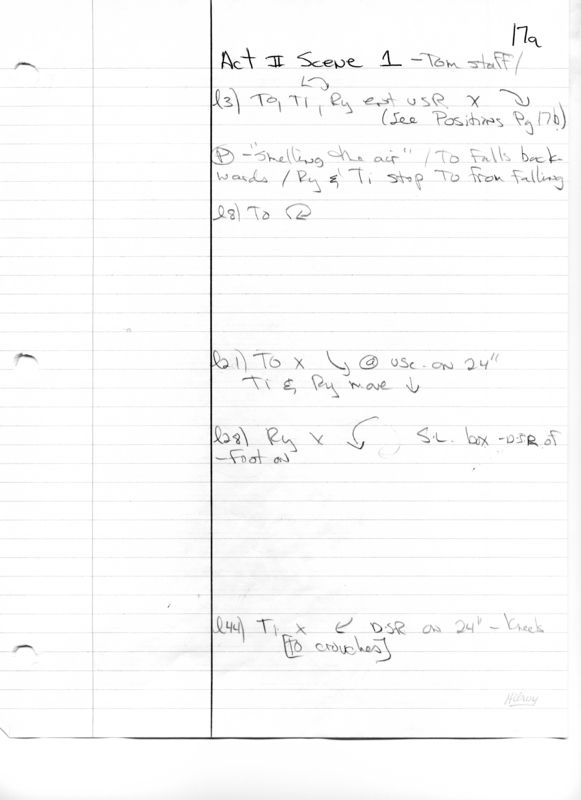 17a
Act II Scene 1 - Tom staff/
l3) To, Ti, Ry ent USR X ↘
(See Positions Pg 17b)
Ⓟ - "Smelling the air" / To Falls back-
wards / Ry & Ti stop To from falling
l8) To
l21) To X ↳ @ USC - on 24"
Ti & Ry move ↓
l28) Ry X S.L. box - DSR of
- foot on
l44) Ti X ↙ DSR on 24" - kneels
[To crouches]
Hilroy